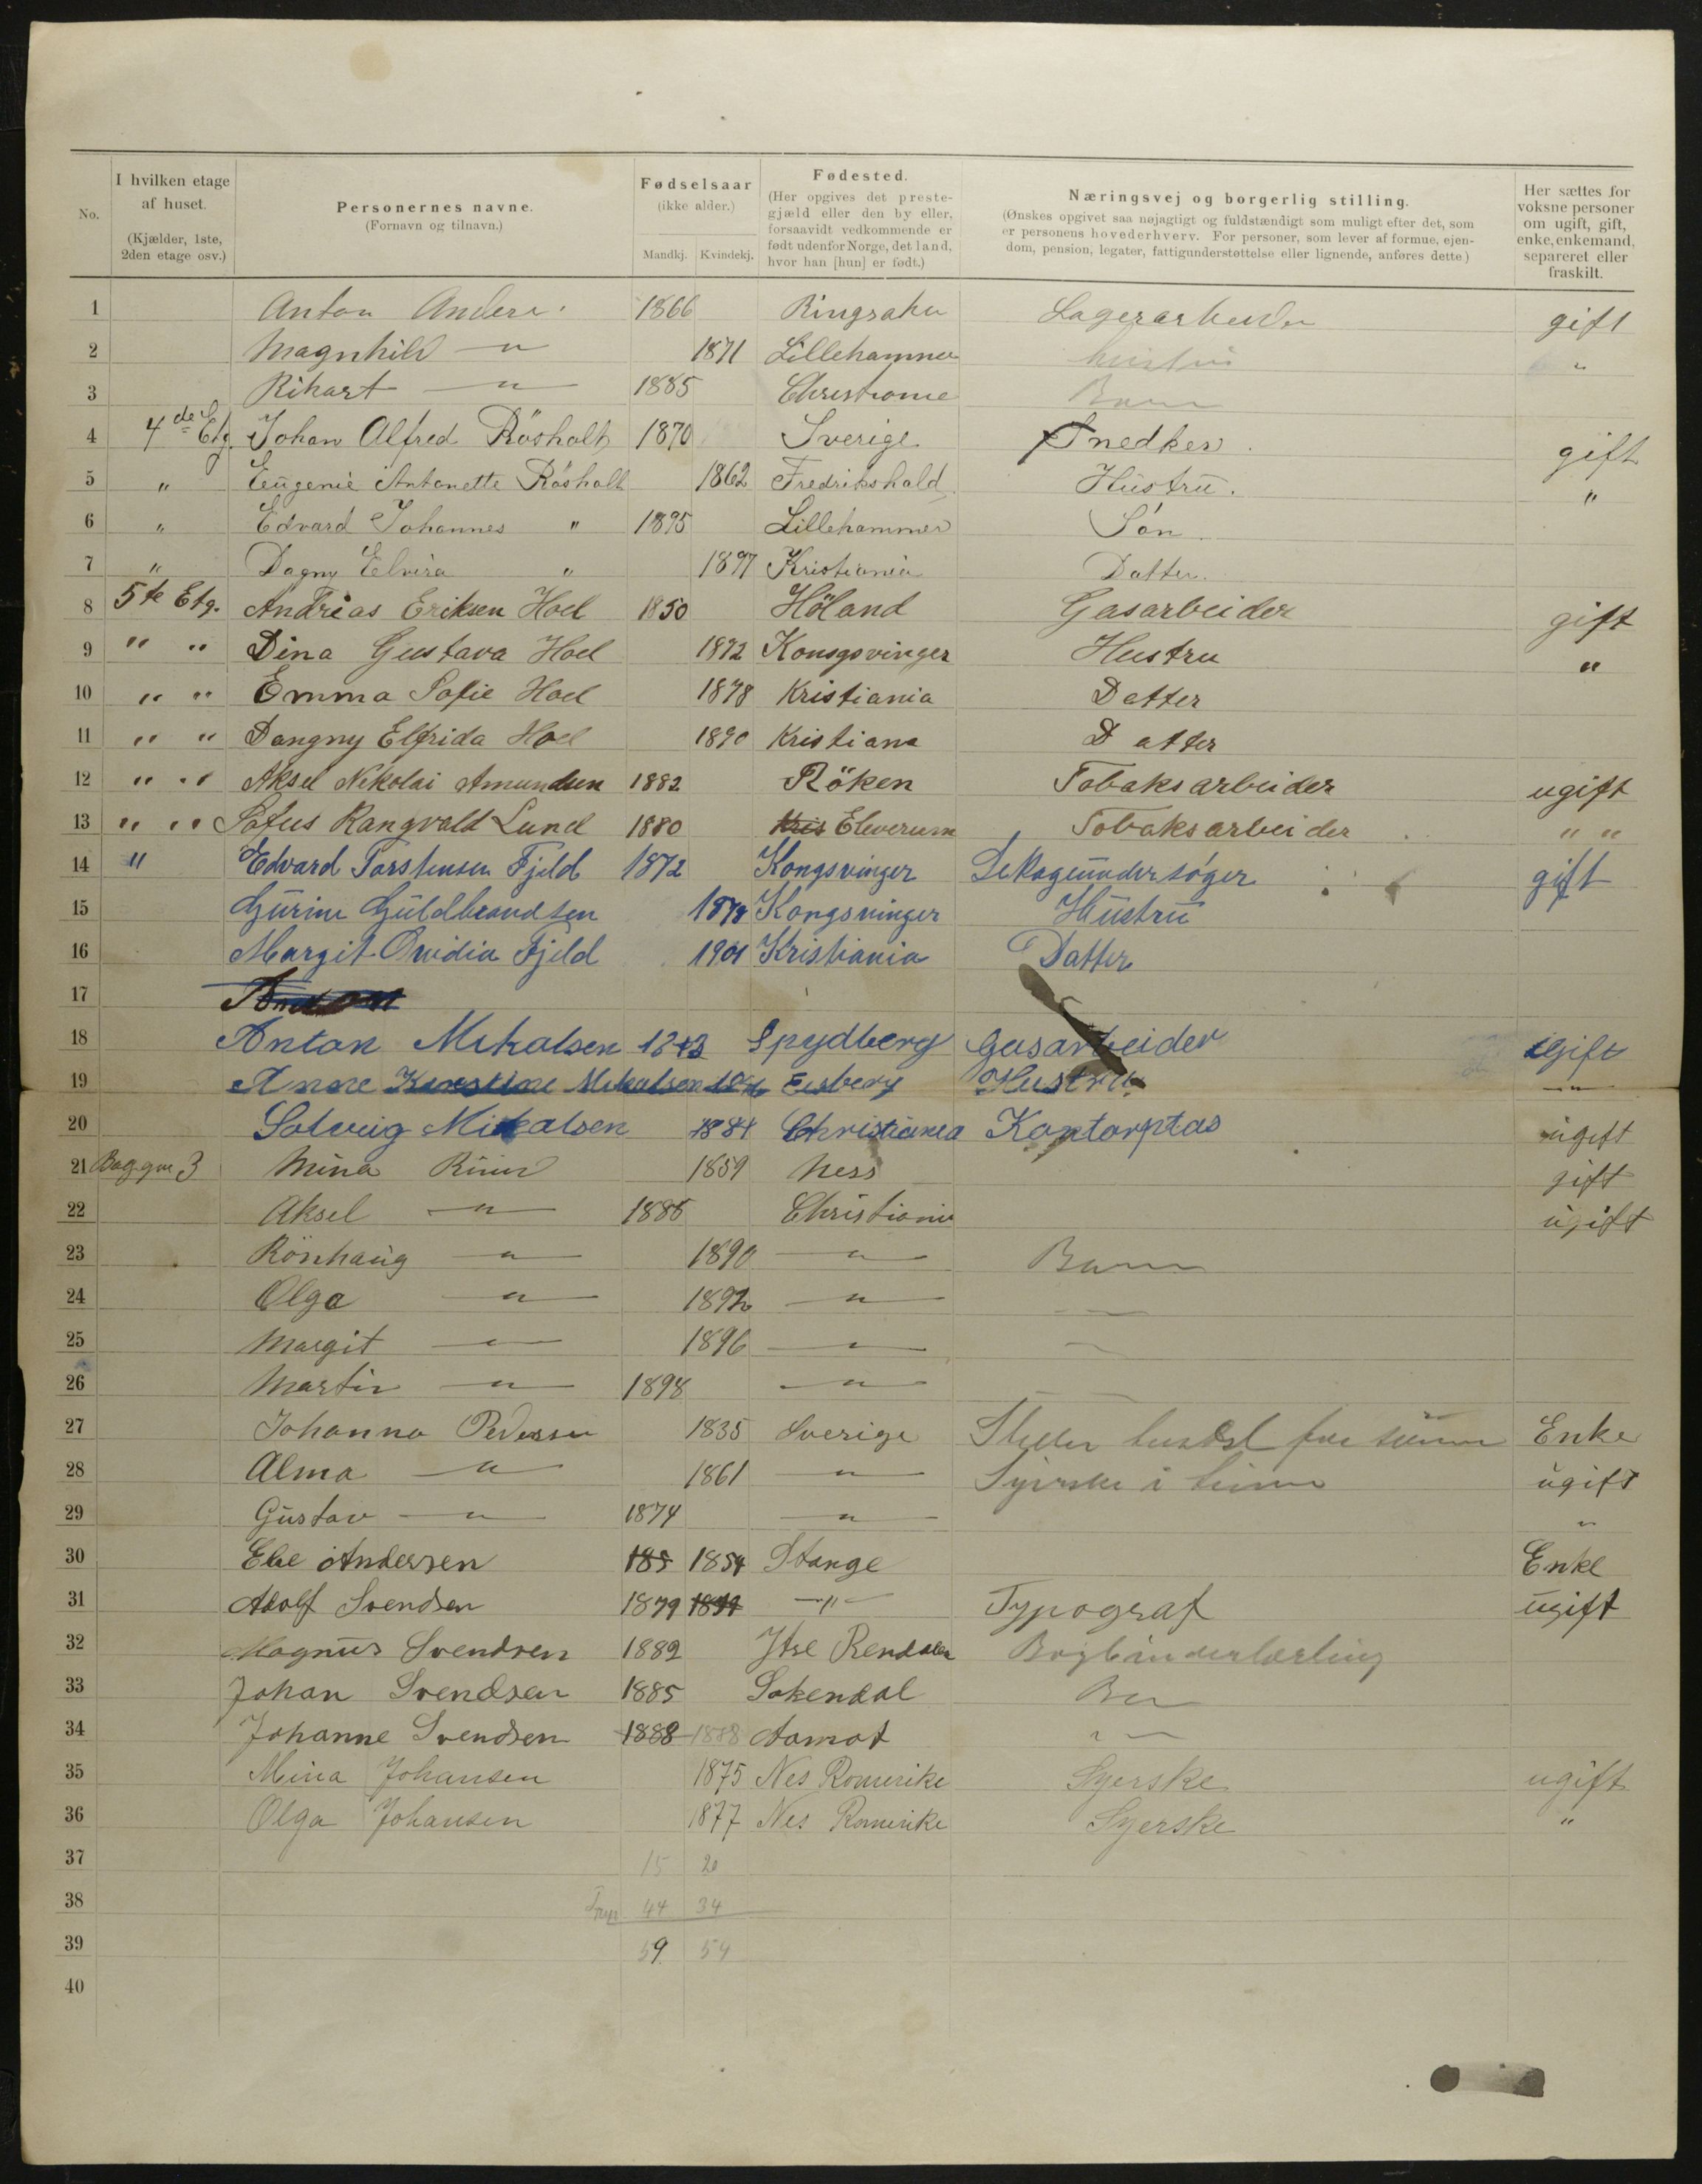 No.
I hvilken etage af huset. (Kjælder, 1ste, 2den etage osv.)
Personernes navne. (Fornavn og tilnavn.)
Fødselsaar (ikke alder.) Mandkj. Kvindekj.
Fødested. (Her opgives det prestegjæld eller den by eller, forsaavidt vedkommende er født udenfor Norge, det land, hvor han [hun] er født.)
Næringsvej og borgerlig stilling. (Ønskes opgivet saa nøjagtigt og fuldstændigt som muligt efter det, som er personens hovederhverv. For personer, som lever af formue, ejendom, pension, legater, fattigunderstøttelse eller lignende, anføres dette)
Her sættes for voksne personer om ugift, gift, enke, enkemand, separeret eller fraskilt.
1 Anton Anders. 1866 Ringsaker Lagerarbeider gift
2 Magnhild — " 1871 Lillehammer hustru "
3 Rikart — " — 1885 Christiania Barn
4 4de Etg. Johan Alfred Rösholt 1870 Sverige Snedker. gift
5 " Eugenie Antonette Rösholt 1862 Fredrikshald Hustru. "
6 " Edvard Johannes " 1895 Lillehammer Søn
7 " Dagny Elvira " 1897 Kristiania Datter.
8 5te Etg. Andreas Eriksen Hoel 1850 Höland Gasarbeider gift
9 " " Dina Gustava Hoel 1872 Konsgsvinger Hustru "
10 " " Emma Sofie Hoel 1878 Kristiania Datter
11 " " Dangny Elfrida Hoel 1890 Kristiana Datter
12 " " Aksel Nikolai Amundsen 1882 Röken Tobaksarbeider ugift
13 " " Sofus Rangvald Lund 1880 Kris Eleverum Tobaksarbeider " "
14 " Edvard Torstensen Fjeld 1872 Kongsvinger Lekageundersøger gift
15 Gurine Guldbrandsen 1878 Kongsvinger Hustru
16 Margit Ovidia Fjeld 1901 Kristiania Datter
17
18 Anton Mikalsen Spydberg Gasarbeider Gift
19 Anne Mikalsen Eidsberg Hustru — " —
20 Solveig Mikalsen 1884 Christiania Kontorptas ugift
21 Baggm 3 Mina 1859 Ness gift
22 Aksel — " — 1885 Christiania ugift
23 Rönhaug — " — 1890 — " — Barn
24 Olga — " — 1892 — " — —
25 Margit — " — 1896 — " — —
26 Martin — " — 1898 — " — —
27 Johanna Pedersen 1835 Sverige Steller huset for Enke
28 Alma — " — 1861 — " — Syerske i ugift
29 Gustav — " — 1874 — " — "
30 Else Andersen 185 1854 Stange Enke
31 Adolf Svendsen 1879 — " — Typograf ugift
32 Magnus Svendsen 1882 Ytre Rendalen Bogbinderlærling
33 Johan Svendsen 1885 Sokendal Barn
34 Johanne Svendsen 1888 1888 Aamot — " —
35 Mina Johansen 1875 Nes Romerike Syerske ugift
36 Olga Johansen 1877 Nes Romerike Syerske "
37 15 20
38 44 34
39 59 54
40